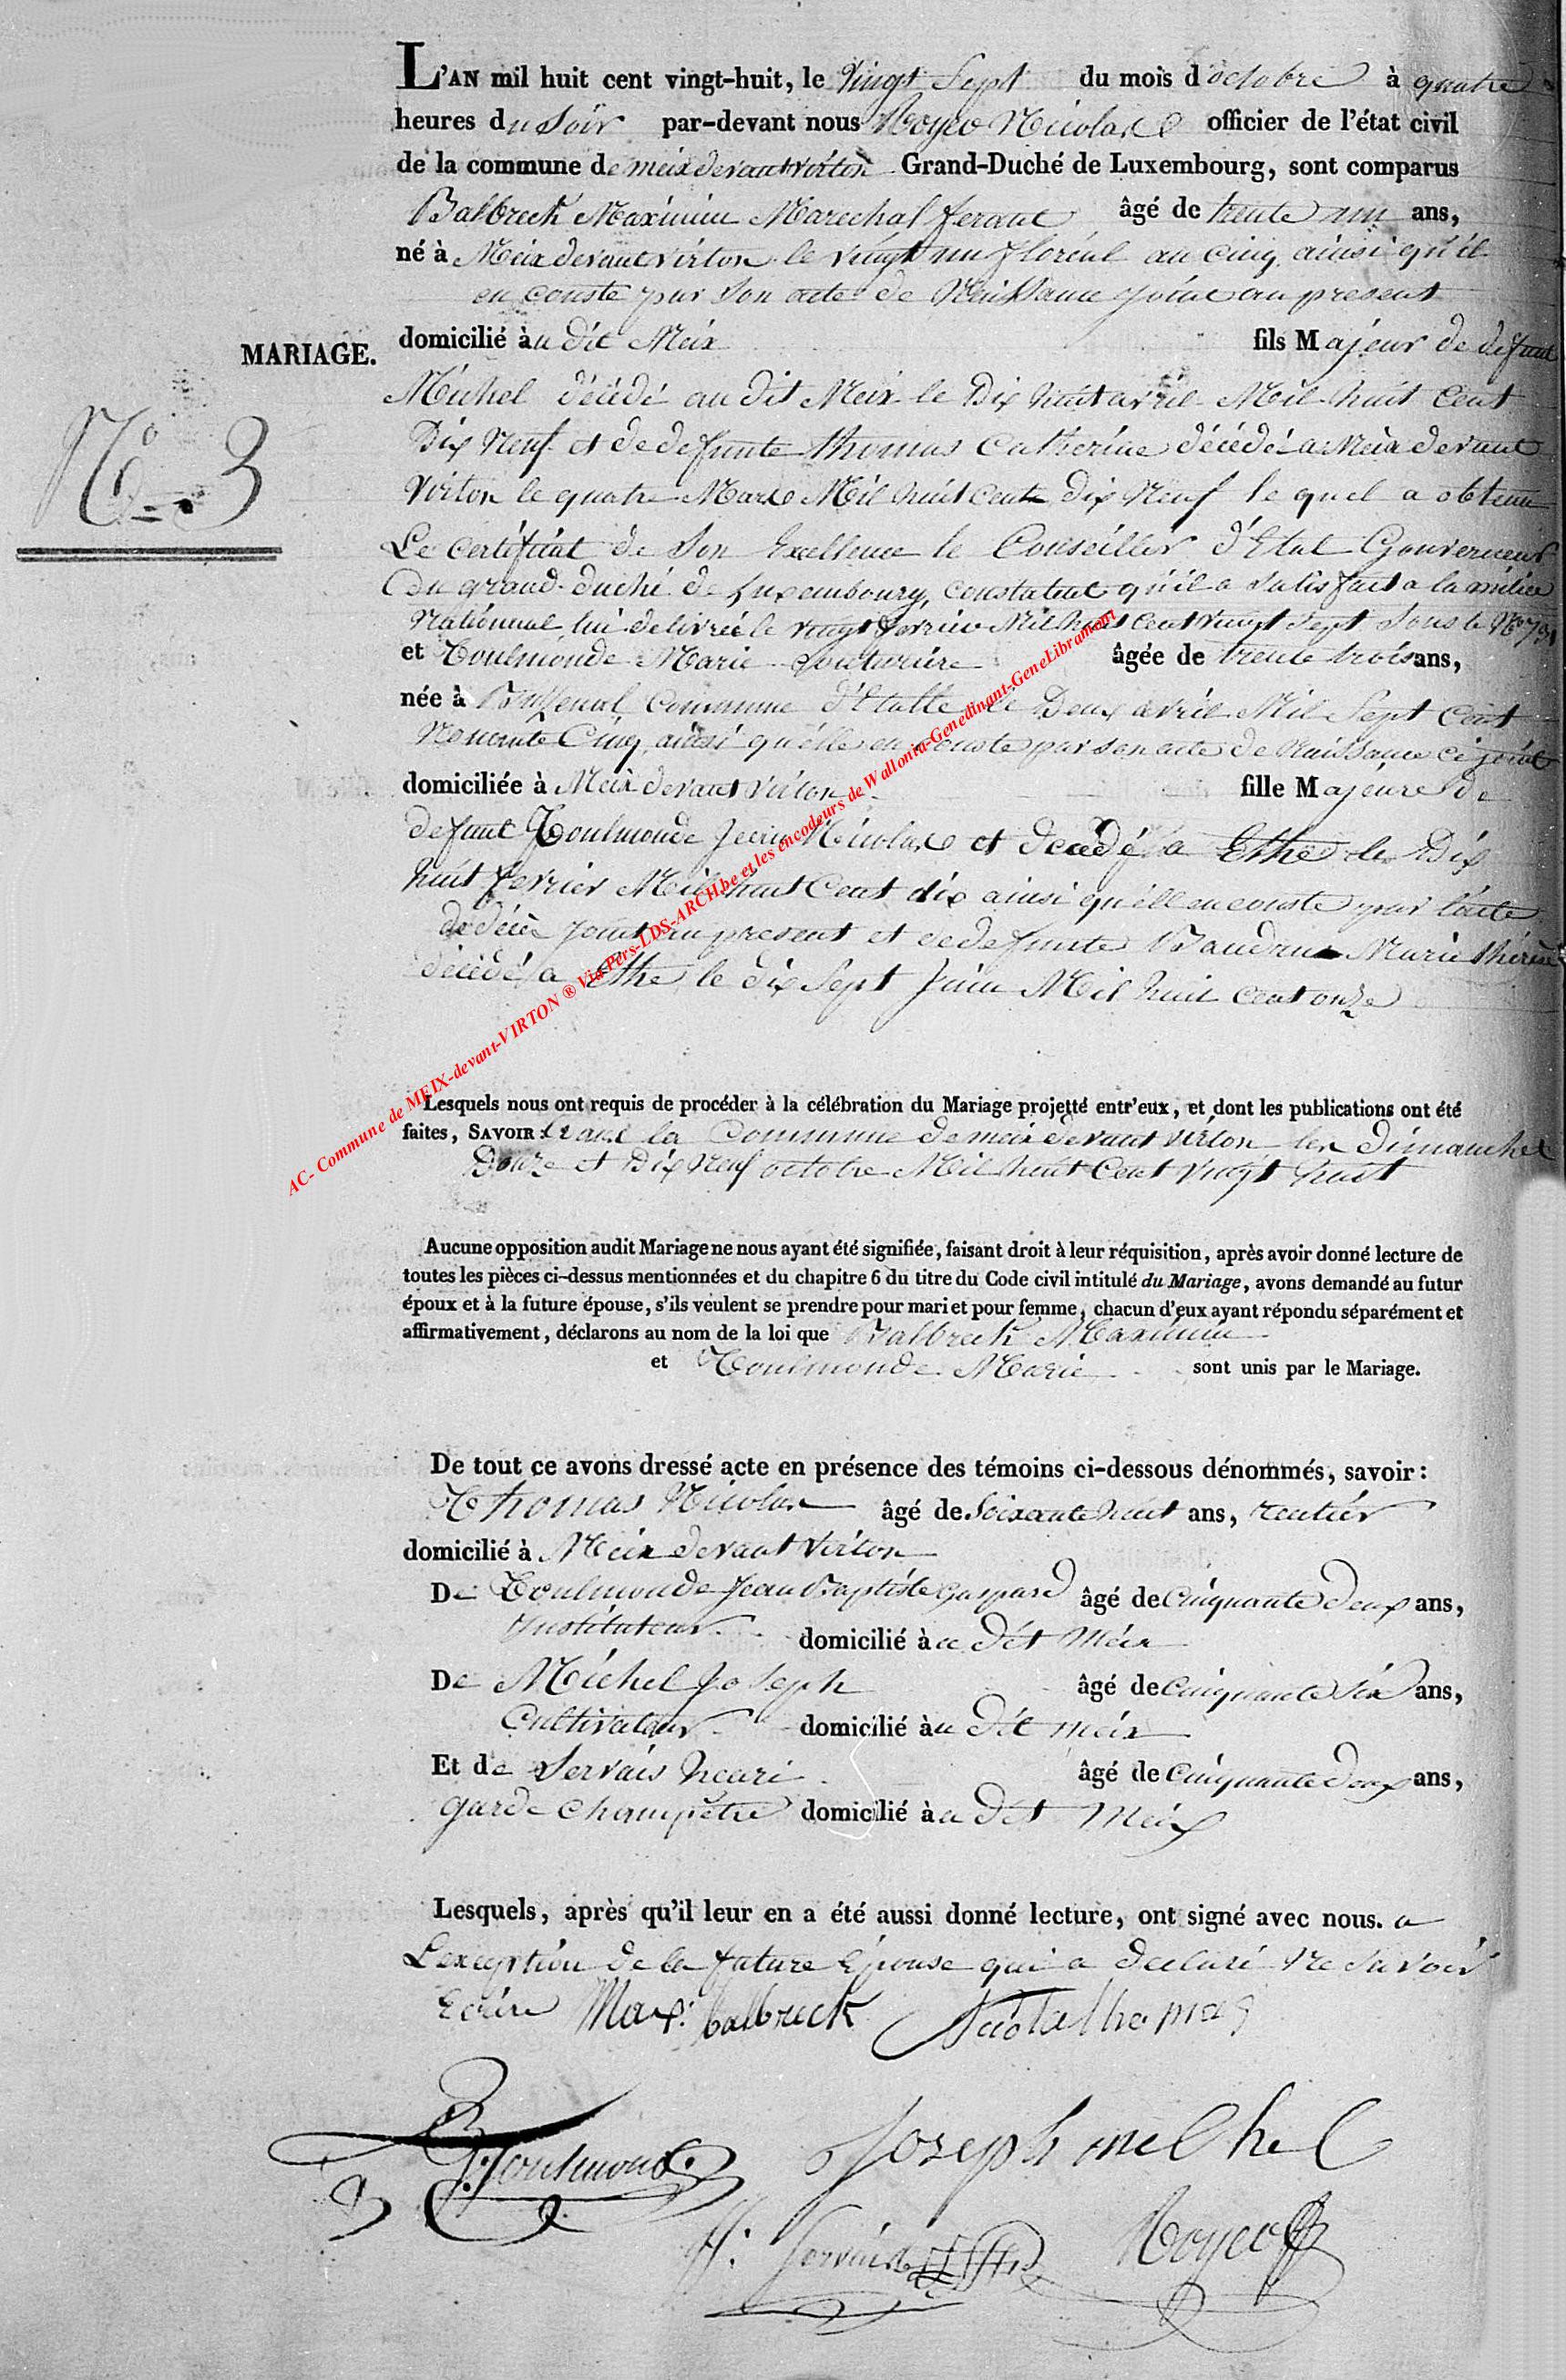 L'AN mil huit cent vingt-huit, le Vingt Sept du mois d'octobre à quatre
heures du Soir par-devant nous Noyeo Nicolas officier de l'état civil
de la commune de meix devant virton Grand-Duché de Luxembourg, sont comparus
Balbreck Maximin Marechal ferant âgé de trente un ans,
né à Meix devant virton le vingt un floréal an cinq ainsi qu'il
en conste par Son acte de Naissance joint au present
domicilié à au dit Meix fils Majeur de defunt
MARIAGE.
N° 3
Michel décédé au dit Meix le Dix huit avril Mil huit Cent
Dix Neuf et de defunte thomas Catherine décédé a Meix devant
Virton le quatre Mars Mil huit Cent dix Neuf le quel a obtenu
Le Certificat de Son Excellence le Conseiller d'Etat Gouverneur
Du grand-duché de Luxembourg, constatant qu'il a satisfait a la milice
Nationnal lui delivrée le vingt fevrier Mil huit Cent vingt Sept Sous le N°
et Toulmonde Marie couturière âgée de trente trois ans,
née à Buzenol Commune d'Etalle le Deux avril Mil Sept Cent
Nonante Cinq ainsi qu'elle en conste par son acte de Naissance ci joint
domiciliée à Meix devant Virton fille Majeure de
defunt Toulmonde Jean Nicolas et decédé a Ethe le Dix
huit fevrier Mil huit Cent dix ainsi qu'elle en conste par l'acte
de décès joint au present et de defunte Baudru Marie thérèse
décédé a Ethe le dix Sept Juin Mil huit Cent onze
Lesquels nous ont requis de procéder à la célébration du Mariage projetté entr'eux, et dont les publications ont été
faites, SAVOIR : Dans la Commune de meix devant virton les Dimanches
Douze et Dix Neuf octobre Mil huit Cent vingt huit
Aucune opposition audit Mariage ne nous ayant été signifiée, faisant droit à leur réquisition, après avoir donné lecture de
toutes les pièces ci-dessus mentionnées et du chapitre 6 du titre du Code civil intitulé du Mariage, avons demandé au futur
époux et à la future épouse, s'ils veulent se prendre pour mari et pour femme, chacun d'eux ayant répondu séparément et
affirmativement, déclarons au nom de la loi que Balbreck Maximin
et Toulmonde Marie sont unis par le Mariage.
De tout ce avons dressé acte en présence des témoins ci-dessous dénommés, savoir :
Thomas Nicolas âgé de Soixante huit ans, rentier
domicilié à Meix devant Virton
De Toulmonde Jean Baptiste Gaspard âgé de Cinquante Deux ans,
Instituteur domicilié à au Dit Meix
De Michel Joseph âgé de Cinquante Six ans,
Cultivateur domicilié à au Dit meix
Et de Servais henri âgé de Cinquante Deux ans,
garde Champêtre domicilié à au Dit Meix
Lesquels, après qu'il leur en a été aussi donné lecture, ont signé avec nous. a
L'exception de la future Epouse qui a declaré Ne Savoir
Ecrire Max: balbreck Nicola thomas
Toulmonde Joseph michel
H. Servais Noyeo
AC- Commune de MEIX-devant-VIRTON ® Via Pers-LDS-ARCH.be et les encodeurs de Wallonia-Genedinant-GeneLibramont